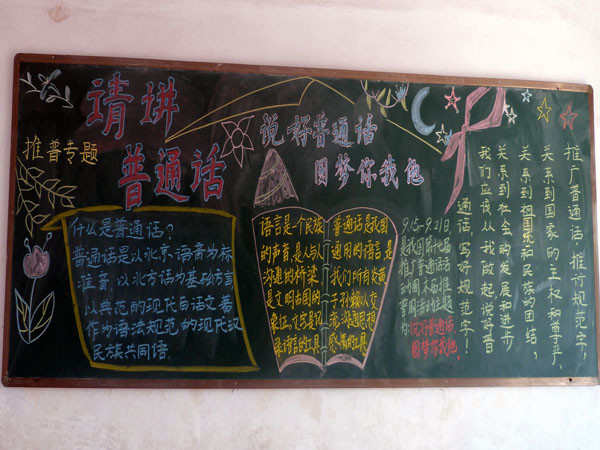 请讲
普通话
推普专题
说好普通话
圆梦你我他
什么是普通话?
普通话是以北京语音为标
准音,以北方话为基础方言
以典范的现代白话文著
作为语法规范的现代汉
民族共同语.
语言是一个民族
的声音,是人与人
沟通的桥梁
是文明古国的
象征。文字是记
录语言的工具
普通话是我国
通用的语言是
我们所有炎黄
子孙赖以交
流沟通思想
感情的工具
9.15-9.21日
是我国第
推广普通话
说好普通话
圆梦你我他.
推广普通话,推行规范字,
关系到国家的主权和尊严,
关系到祖国和民族的团结,
关系到社会的发展和进步
我们应该从我做起说好普
通话,写好规范字!